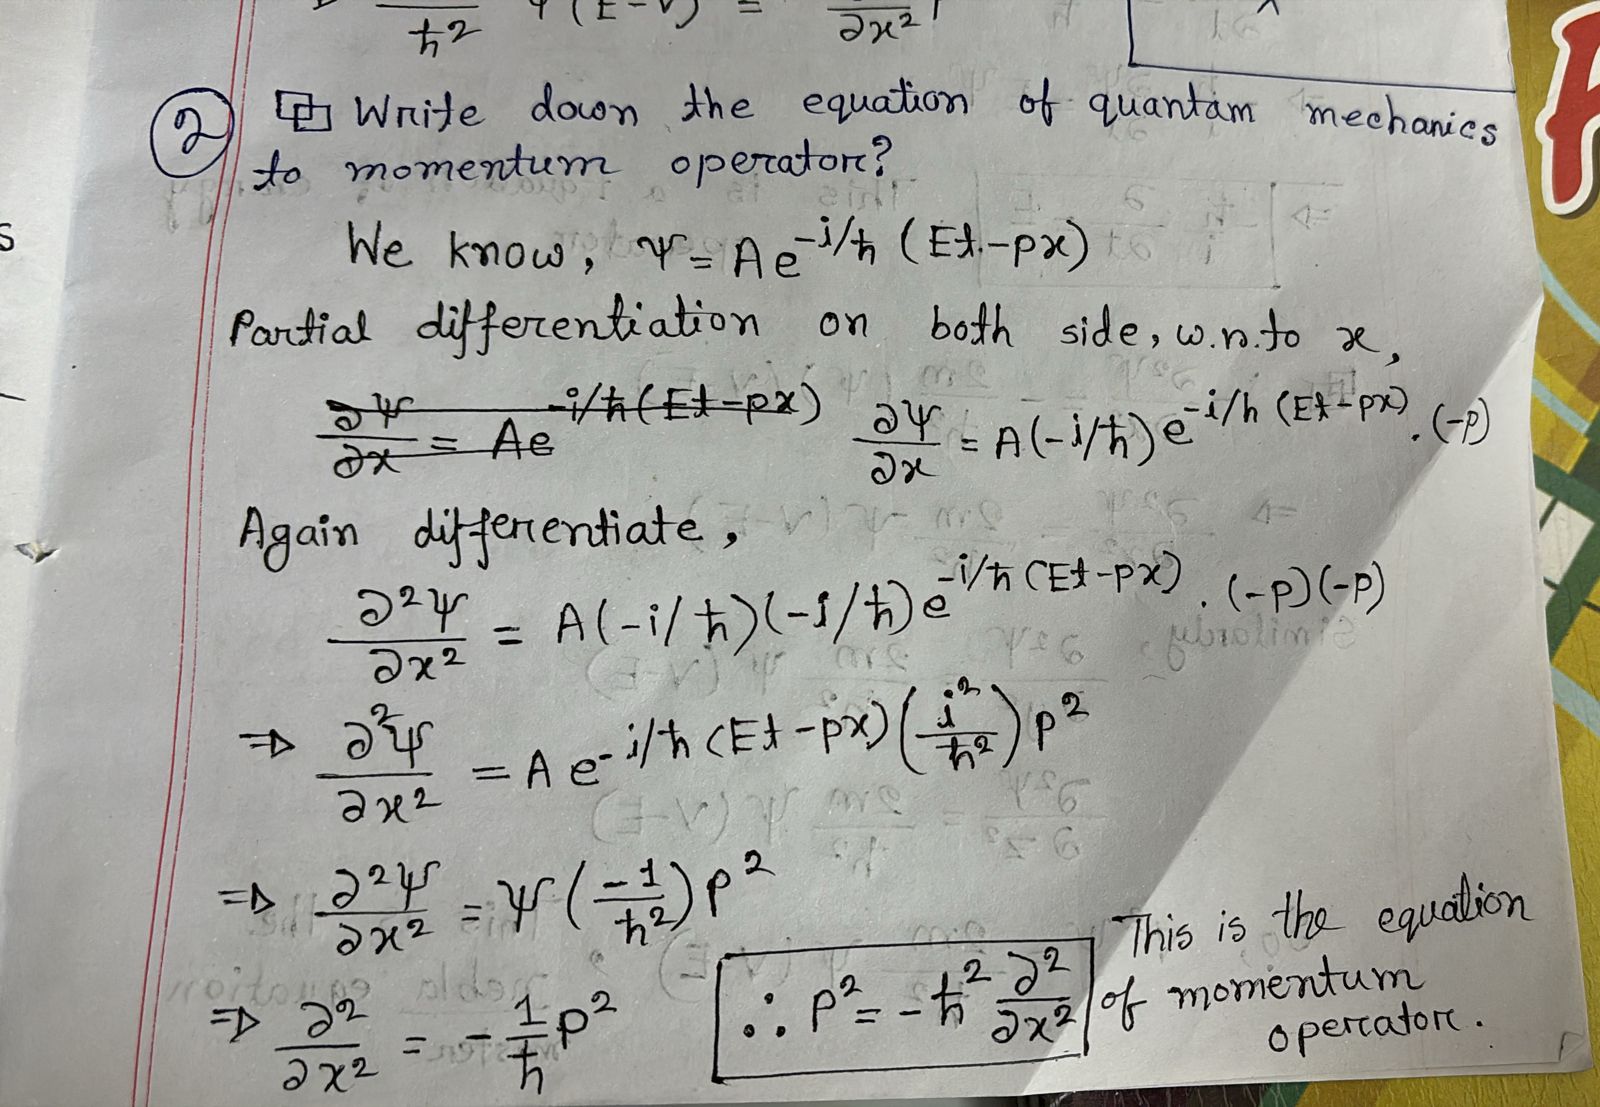 ħ² ψ(E-V) = ∂x²
② Write down the equation of quantam mechanics
to momentum operator?
We know, ψ = Ae^-i/ħ (Et-px)
Partial differentiation on both side, w.r.to x,
∂ψ/∂x = Ae^-i/ħ(Et-px) ∂ψ/∂x = A(-i/ħ)e^-i/h (Et-px) . (-p)
Again differentiate,
∂²ψ/∂x² = A(-i/ħ)(-i/ħ)e^-i/ħ (Et-px) . (-p)(-p)
⇒ ∂²ψ/∂x² = A e^-i/ħ (Et-px) (i²/ħ²) p²
⇒ ∂²ψ/∂x² = ψ(-1/ħ²)p²
⇒ ∂²/∂x² = -1/ħ p²
∴ p² = -ħ² ∂²/∂x²
This is the equation
of momentum
operator.